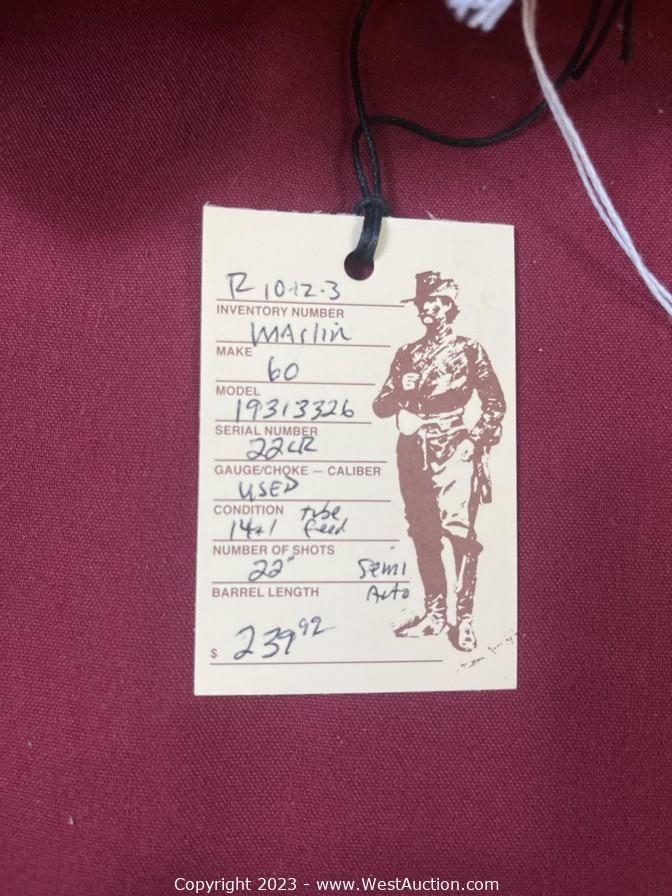 R 10-12-3
INVENTORY NUMBER
MArlin
MAKE
60
MODEL
19313326
SERIAL NUMBER
22LR
GAUGE/CHOKE — CALIBER
USED
CONDITION tube
14+1 feed
NUMBER OF SHOTS
22" Semi
BARREL LENGTH Auto
$ 239.92
Copyright 2023 - www.WestAuction.com